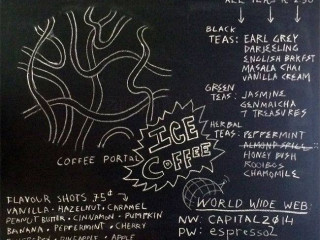 ALL TEAS
BLACK
TEAS: EARL GREY
DARJEELING
ENGLISH BRKFST
MASALA CHAI
VANILLA CREAM
GREEN
TEAS: JASMINE
GENMAICHA
7 TREASURES
HERBAL
TEAS: PEPPERMINT
ALMOND SPELL
HONEY BUSH
ROOIBOS
CHAMOMILE
ICE
COFFEE
COFFEE PORTAL
FLAVOUR SHOTS 75¢
VANILLA · HAZELNUT · CARAMEL
PEANUT BUTTER · CINNAMON · PUMPKIN
BANANA · PEPPERMINT · CHERRY
PINEAPPLE · APPLE
WORLD WIDE WEB:
NW: CAPITAL2014
PW: espresso2